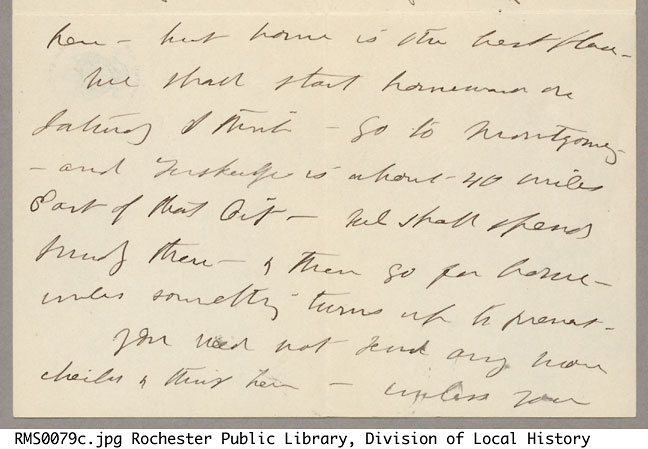 here - but home is the best place -
We shall start homeward on
Saturday I think - go to Montgomery
- and Tuskegee is about 40 miles
East of that City - We shall spend
Sunday there - & then go for home -
unless something turns up to prevent -
You need not send any more
& things here - unless you
RMS0079c.jpg Rochester Public Library, Division of Local History